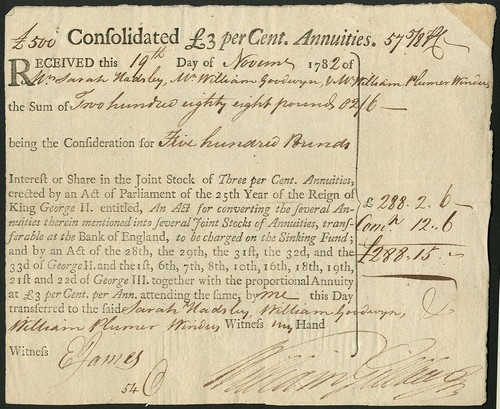 £500 Consolidated £3 per Cent. Annuities. 57 5/8
RECEIVED this 19th Day of Novemr 1782 of
Mrs Sarah Hadsley, Mr William Goodwyn, & Mr William Plumer Winders
the Sum of Two hundred eighty eight pounds 02/6 —
being the Consideration for Five hundred Pounds
Interest or Share in the Joint Stock of Three per Cent. Annuities,
erected by an Act of Parliament of the 25th Year of the Reign of
King George II. entitled, An Act for converting the ſeveral An-
nuities therein mentioned into ſeveral Joint Stocks of Annuities, tranſ-
ferable at the Bank of England, to be charged on the Sinking Fund;
and by an Act of the 28th, the 29th, the 31st, the 32d, and the
33d of George II. and the 1ſt, 6th, 7th, 8th, 10th, 16th, 18th, 19th,
21ſt and 22d of George III. together with the proportional Annuity
at £3 per Cent. per Ann. attending the ſame, by me this Day
transferred to the said Sarah Hadsley, William Goodwyn,
William Plumer Winders Witness my Hand
£ 288. 2. 6 —
Comn 12. 6
£288. 15. —
Witness E James
54
William